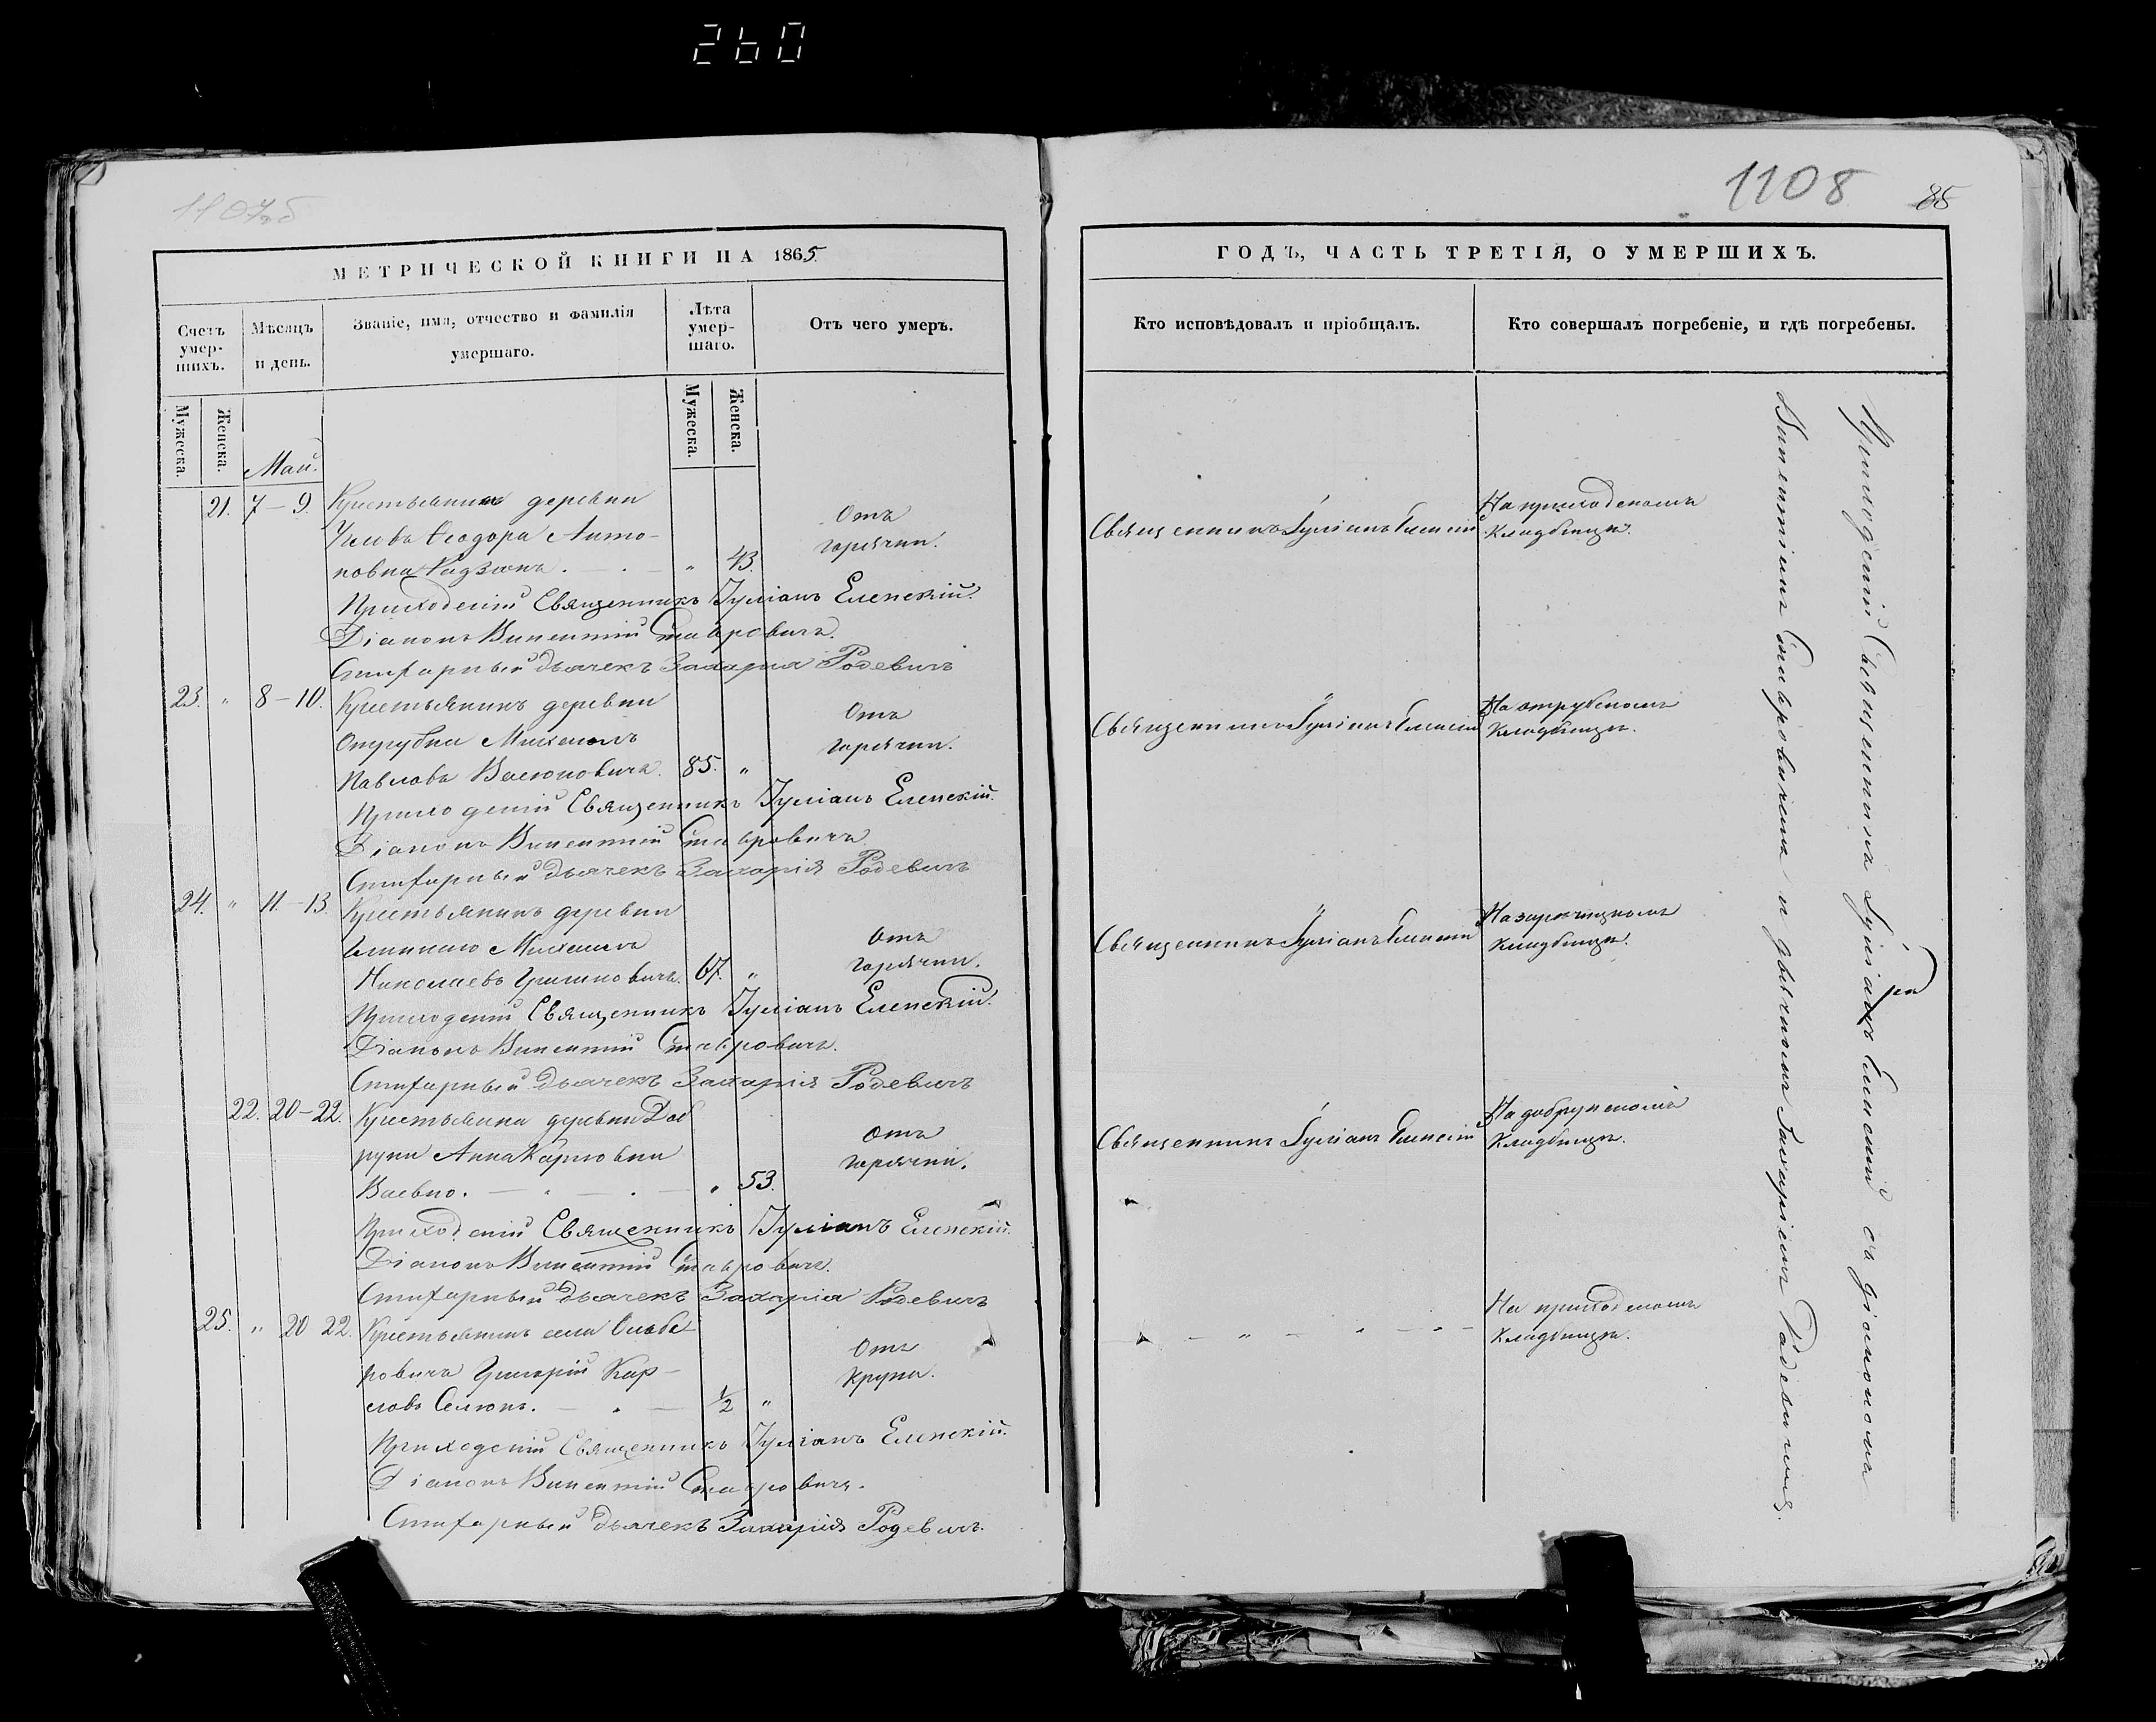 260
1107об
МЕТРИЧЕСКОЙ КНИГИ НА 1865.
Счетъ умер-шихъ.
Мѣсяцъ и день.
Званіе, имя, отчество и фамилія умершаго.
Лѣта умер-шаго.
Отъ чего умеръ.
Мужеска.
Женска.
Май.
Мужеска.
Женска.
21. 7–9. Крестьянка деревни
Ѳеодора Анто-
новна 43.
Отъ
горячки.
Приходскій Священникъ Іуліанъ Еленскій.
Діаконъ Викентій Ставровичъ.
Заштатный Дьячекъ Захарія Родевичъ
23. " 8–10. Крестьянинъ деревни
Отрубка Михаилъ
Павловъ Васюковичъ. 85. "
Отъ
горячки.
Приходскій Священникъ Іуліанъ Еленскій.
Діаконъ Викентій Ставровичъ.
Дьячекъ Захарія Родевичъ
24. " 11–13. Крестьянинъ деревни
Михаилъ
Николаевъ Гришковичъ. 67. "
Отъ
горячки.
Приходскій Священникъ Іуліанъ Еленскій.
Діаконъ Викентій Ставровичъ.
Дьячекъ Захарія Родевичъ
22. 20–22. Крестьянка деревни Доб
руни Анна Карповна
" 53.
Отъ
горячки.
Приходскій Священникъ Іуліанъ Еленскій.
Діаконъ Викентій Ставровичъ.
Дьячекъ Захарія Родевичъ
25. " 20 22. Крестьянинъ села
ровичъ Григорій Кар-
ловъ 1/2 "
Отъ
крупа.
Приходскій Священникъ Іуліанъ Еленскій.
Діаконъ Викентій Ставровичъ.
Дьячекъ Захарія Родевичъ.
1108
85
ГОДЪ, ЧАСТЬ ТРЕТІЯ, О УМЕРШИХЪ.
Кто исповѣдовалъ и пріобщалъ.
Кто совершалъ погребеніе, и гдѣ погребены.
Священникъ Іуліанъ Еленскій
На приходскомъ
кладбищѣ.
Священникъ Іуліанъ Еленскій
На отрубскомъ
кладбищѣ.
Священникъ Іуліанъ Еленскій
На зарѣчицкомъ
кладбищѣ.
Священникъ Іуліанъ Еленскій
На добрунскомъ
кладбищѣ.
На приходскомъ
кладбищѣ.
Приходскій Священникъ Іуліанъ Еленскій съ діакономъ
Викентіемъ Ставровичемъ и дьячкомъ Захаріемъ Родевичемъ.